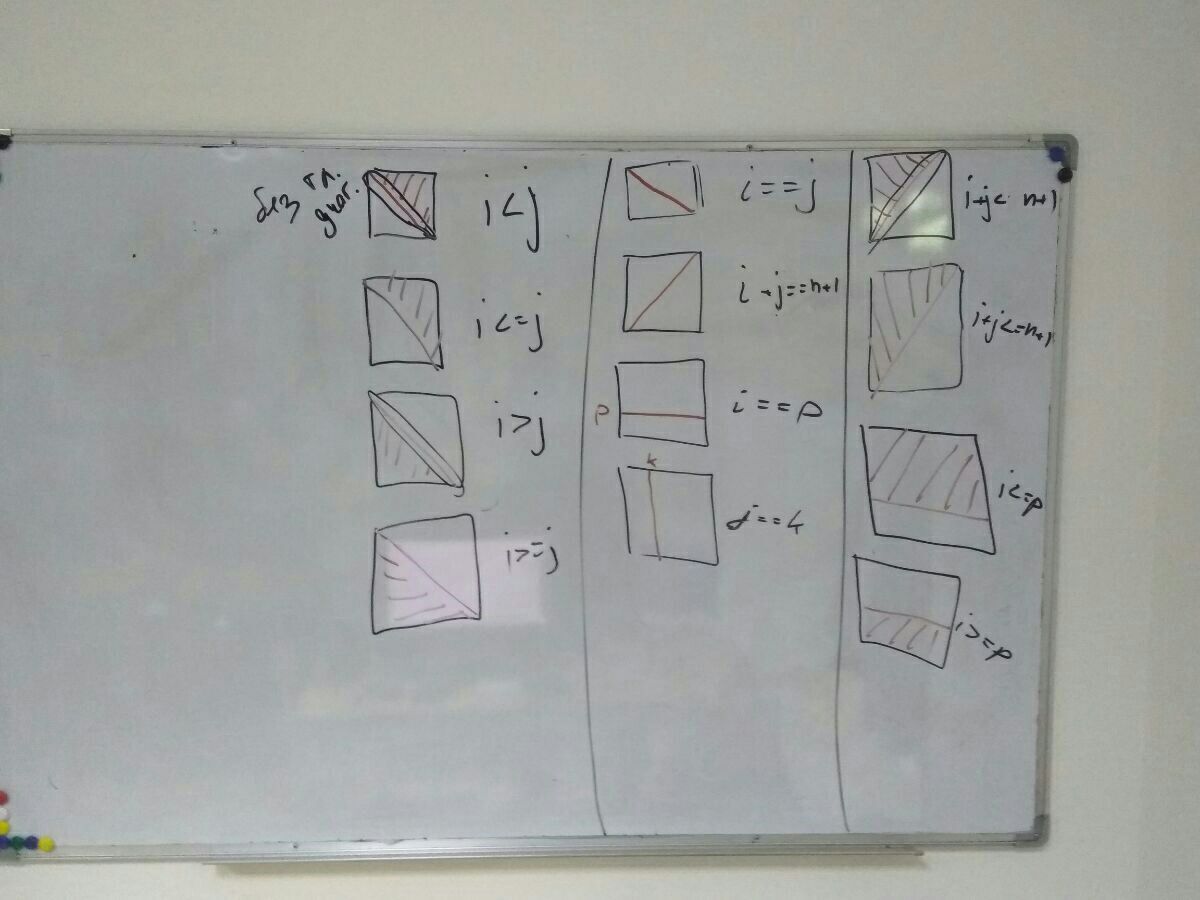 без гл.
диаг.
i<j
i<=j
i>j
i>=j
i==j
i+j==n+1
p
i==p
k
j==k
i+j< n+1
i+j<=n+1
i<=p
i>=p